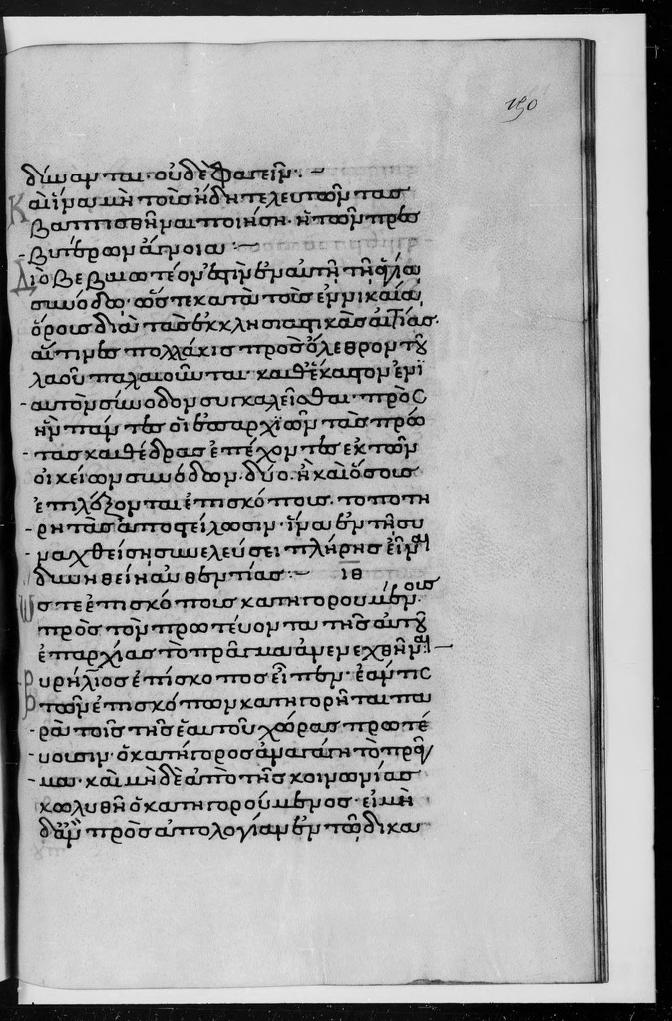 150
δύνανται· οὐδὲ φαγεῖν:
Καὶ ἵνα μὴ τοὺς ἤδη τελευτῶντας
βαπτισθῆναι ποιήσῃ· ἡ τῶν πρεσ
βυτέρων ἄγνοια:
Διὸ βεβαιωτέον ἐστὶν ἐν αὐτῇ τῇ ἁγίᾳ
συνόδῳ· ὥστε κατὰ τοὺς ἐν νικαίᾳ
ὅρους διὰ τὰς ἐκκλησιαστικὰς αἰτίας·
αἵτινες πολλάκις πρὸς ὄλεθρον τοῦ
λαοῦ παλαιοῦνται· καθ' ἕκαστον ἐνι
αυτὸν σύνοδον συγκαλεῖσθαι· πρὸς
ἣν πάντες οἱ ἐπαρχιῶν τὰς πρώ
τας καθέδρας ἐπέχοντες ἐκ τῶν
οἰκείων συνόδων· δύο· ἢ καὶ ὅσους
ἐπιλέξονται ἐπισκόπους· τοποτη
ρητὰς ἀποστείλωσιν· ἵνα ἐν τῇ συ
ναχθείσῃ συνελεύσει πλήρης εἶναι
δυνηθείη αὐθεντίας: ιθ
Ὥστε ἐπισκόπους κατηγορουμένους
πρὸς τὸν πρωτεύοντα τῆς αὐτοῦ
ἐπαρχίας τὸ πρᾶγμα ἀνενεχθῆναι:
υρήλιος ἐπίσκοπος εἶπεν· ἐάν τις
τῶν ἐπισκόπων κατηγορῆται πα
ρὰ τοῖς τῆς ἑαυτοῦ χώρας πρωτέ
υουσιν· ὁ κατήγορος ἀναγάγῃ τὸ πρᾶγ
μα· καὶ μηδὲ ἀπὸ τῆς κοινωνίας
κωλυθῇ ὁ κατηγορούμενος· εἰ μὴ
δ' ἂν πρὸς ἀπολογίαν ἐν τῷ δικα